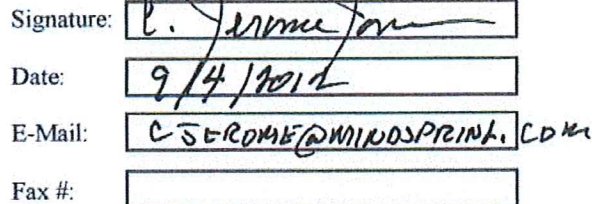 Signature: C. Jerome Jones
Date: 9/4/2012
E-Mail: CJEROME@MINDSPRING.COM
Fax #: